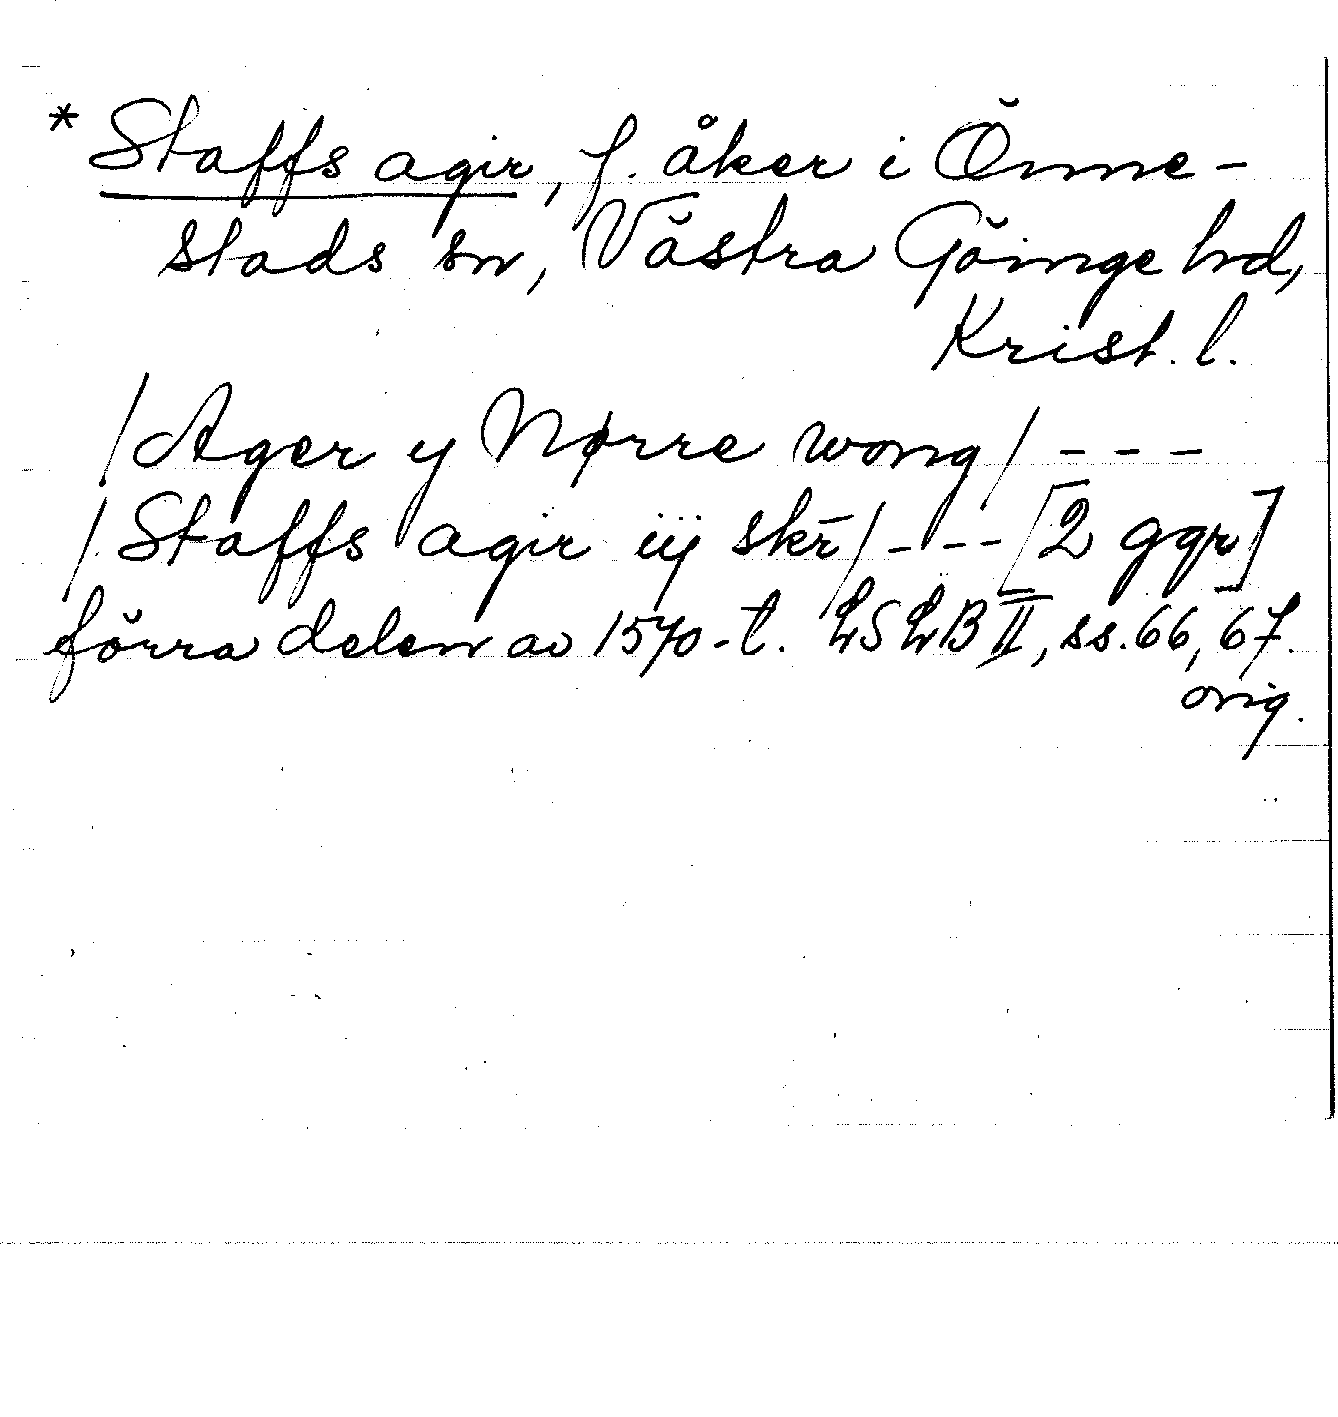 * Staffs agir, f. åker i Önne-
stads sn, Västra Göinge hd,
Krist. l.
/Ager y Nørre wong/ - - -
/Staffs agir iij skr̄/ - - - [2 ggr]
förra delen av 1570-t. LSLB II, ss. 66, 67.
orig.